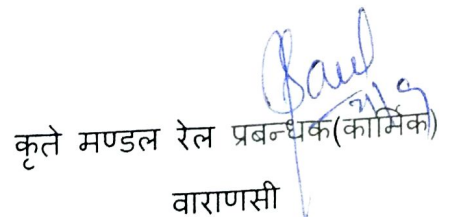 कृते मण्डल रेल प्रबन्धक(कार्मिक)
वाराणसी